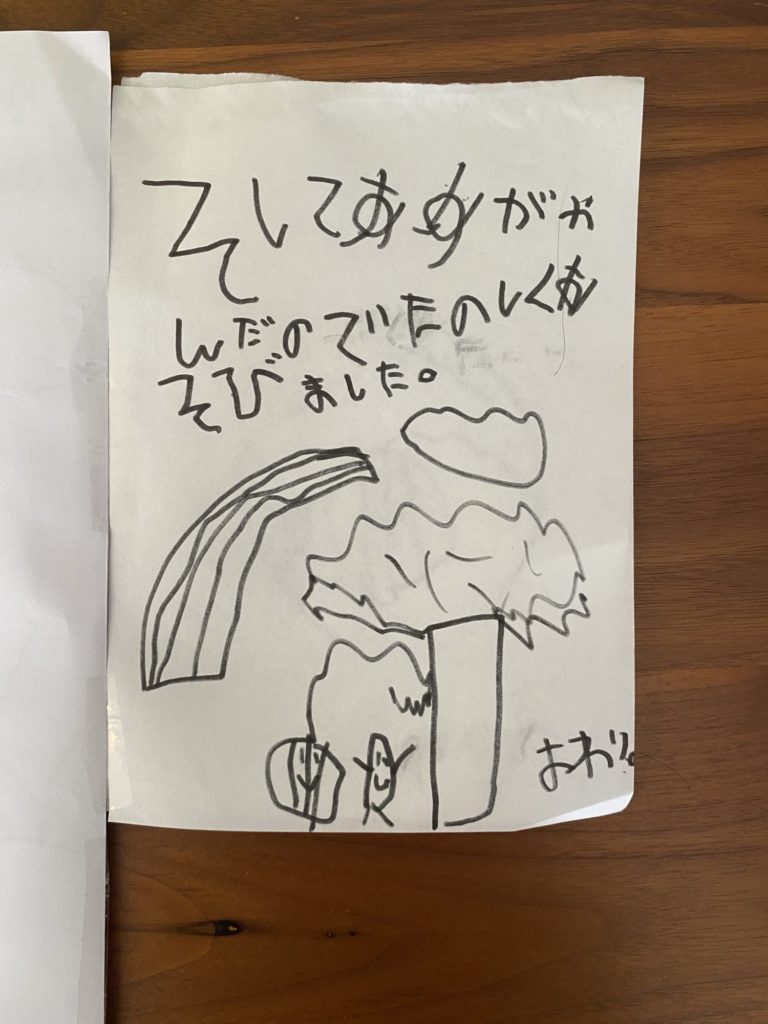 そしてあめがや
んだのでたのしくあ
そびました。
おわり。